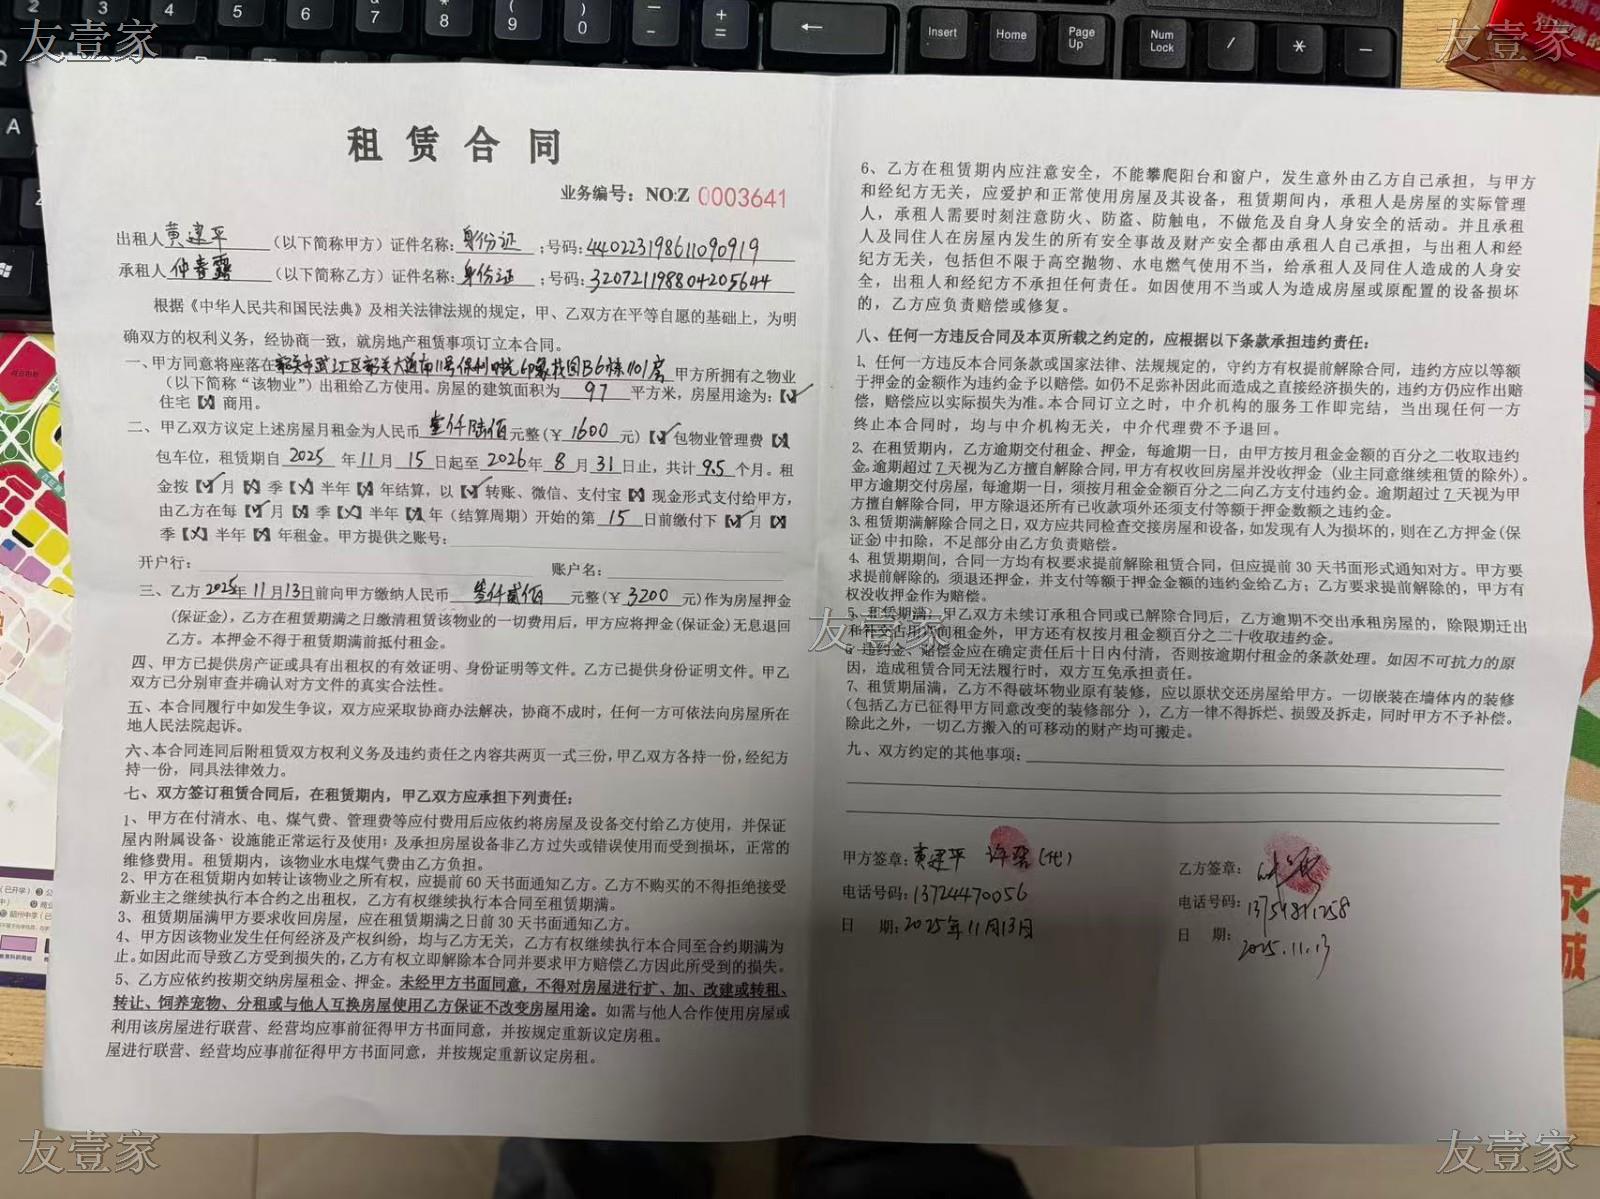 友壹家
友壹家
Insert
Home
Page Up
Num Lock
租赁合同
业务编号：NO:Z 0003641
出租人黄建平（以下简称甲方）证件名称:身份证；号码:440223198611090919
承租人仲春露（以下简称乙方）证件名称:身份证；号码:320721198804205644
根据《中华人民共和国民法典》及相关法律法规的规定，甲、乙双方在平等自愿的基础上，为明
确双方的权利义务，经协商一致，就房地产租赁事项订立本合同。
一、甲方同意将座落在韶关市武江区韶关大道南11号保利 印象花园B6栋101房 甲方所拥有之物业
（以下简称“该物业”）出租给乙方使用。房屋的建筑面积为 97 平方米，房屋用途为：【✓】
住宅【X】商用。
二、甲乙双方议定上述房屋月租金为人民币 壹仟陆佰元整（￥1600 元）【✓】包物业管理费【X】
包车位，租赁期自 2025 年 11 月 15 日起至 2026年 8 月 31 日止，共计 9.5 个月。租
金按【✓】月【X】季【X】半年【X】年结算，以【✓】转账、微信、支付宝【X】现金形式支付给甲方，
由乙方在每【✓】月【X】季【X】半年【X】年（结算周期）开始的第 15 日前缴付下【✓】月【X】
季【X】半年【X】年租金。甲方提供之账号:
开户行: 账户名:
三、乙方 2025年 11 月 13日前向甲方缴纳人民币 叁仟贰佰 元整（￥3200 元)作为房屋押金
(保证金)，乙方在租赁期满之日缴清租赁该物业的一切费用后，甲方应将押金(保证金)无息退回
乙方。本押金不得于租赁期满前抵付租金。
四、甲方已提供房产证或具有出租权的有效证明、身份证明等文件。乙方已提供身份证明文件。甲乙
双方已分别审查并确认对方文件的真实合法性。
五、本合同履行中如发生争议，双方应采取协商办法解决，协商不成时，任何一方可依法向房屋所在
地人民法院起诉。
六、本合同连同后附租赁双方权利义务及违约责任之内容共两页一式三份，甲乙双方各持一份，经纪方
持一份，同具法律效力。
七、双方签订租赁合同后，在租赁期内，甲乙双方应承担下列责任：
1、甲方在付清水、电、煤气费、管理费等应付费用后应依约将房屋及设备交付给乙方使用，并保证
屋内附属设备、设施能正常运行及使用；及承担房屋设备非乙方过失或错误使用而受到损坏，正常的
维修费用。租赁期内，该物业水电煤气费由乙方负担。
2、甲方在租赁期内如转让该物业之所有权，应提前 60 天书面通知乙方。乙方不购买的不得拒绝接受
新业主之继续执行本合约之出租权，乙方有权继续执行本合同至租赁期满。
3、租赁期届满甲方要求收回房屋，应在租赁期满之日前 30 天书面通知乙方。
4、甲方因该物业发生任何经济及产权纠纷，均与乙方无关，乙方有权继续执行本合同至合约期满为
止。如因此而导致乙方受到损失的，乙方有权立即解除本合同并要求甲方赔偿乙方因此所受到的损失。
5、乙方应依约按期交纳房屋租金、押金。未经甲方书面同意，不得对房屋进行扩、加、改建或转租、
转让、饲养宠物、分租或与他人互换房屋使用乙方保证不改变房屋用途。如需与他人合作使用房屋或
利用该房屋进行联营、经营均应事前征得甲方书面同意，并按规定重新议定房租。
屋进行联营、经营均应事前征得甲方书面同意，并按规定重新议定房租。
6、乙方在租赁期内应注意安全，不能攀爬阳台和窗户，发生意外由乙方自己承担，与甲方
和经纪方无关，应爱护和正常使用房屋及其设备，租赁期间内，承租人是房屋的实际管理
人，承租人需要时刻注意防火、防盗、防触电，不做危及自身人身安全的活动。并且承租
人及同住人在房屋内发生的所有安全事故及财产安全都由承租人自己承担，与出租人和经
纪方无关，包括但不限于高空抛物、水电燃气使用不当，给承租人及同住人造成的人身安
全，出租人和经纪方不承担任何责任。如因使用不当或人为造成房屋或原配置的设备损坏
的，乙方应负责赔偿或修复。
八、任何一方违反合同及本页所载之约定的，应根据以下条款承担违约责任：
1、任何一方违反本合同条款或国家法律、法规规定的，守约方有权提前解除合同，违约方应以等额
于押金的金额作为违约金予以赔偿。如仍不足弥补因此而造成之直接经济损失的，违约方仍应作出赔
偿，赔偿应以实际损失为准。本合同订立之时，中介机构的服务工作即完结，当出现任何一方
终止本合同时，均与中介机构无关，中介代理费不予退回。
2、在租赁期内，乙方逾期交付租金、押金，每逾期一日，由甲方按月租金金额的百分之二收取违约
金。逾期超过 7 天视为乙方擅自解除合同，甲方有权收回房屋并没收押金（业主同意继续租赁的除外）。
甲方逾期交付房屋，每逾期一日，须按月租金金额百分之二向乙方支付违约金。逾期超过 7 天视为甲
方擅自解除合同，甲方除退还所有已收款项外还须支付等额于押金数额之违约金。
3、租赁期满解除合同之日，双方应共同检查交接房屋和设备，如发现有人为损坏的，则在乙方押金(保
证金)中扣除，不足部分由乙方负责赔偿。
4、租赁期期间，合同一方均有权要求提前解除租赁合同，但应提前 30 天书面形式通知对方。甲方要
求提前解除的，须退还押金，并支付等额于押金金额的违约金给乙方；乙方要求提前解除的，甲方有
权没收押金作为赔偿。
5、租赁期满，甲乙双方未续订承租合同或已解除合同后，乙方逾期不交出承租房屋的，除限期迁出
和补交占用期间租金外，甲方还有权按月租金额百分之二十收取违约金。
6、违约金、赔偿金应在确定责任后十日内付清，否则按逾期付租金的条款处理。如因不可抗力的原
因，造成租赁合同无法履行时，双方互免承担责任。
7、租赁期届满，乙方不得破坏物业原有装修，应以原状交还房屋给甲方。一切嵌装在墙体内的装修
(包括乙方已征得甲方同意改变的装修部分），乙方一律不得拆烂、损毁及拆走，同时甲方不予补偿。
除此之外，一切乙方搬入的可移动的财产均可搬走。
九、双方约定的其他事项：
甲方签章：黄建平 (代)
电话号码：13724470056
日 期：2025年11月13日
乙方签章：
电话号码：
日 期：2025.11.13
友壹家
友壹家
友壹家